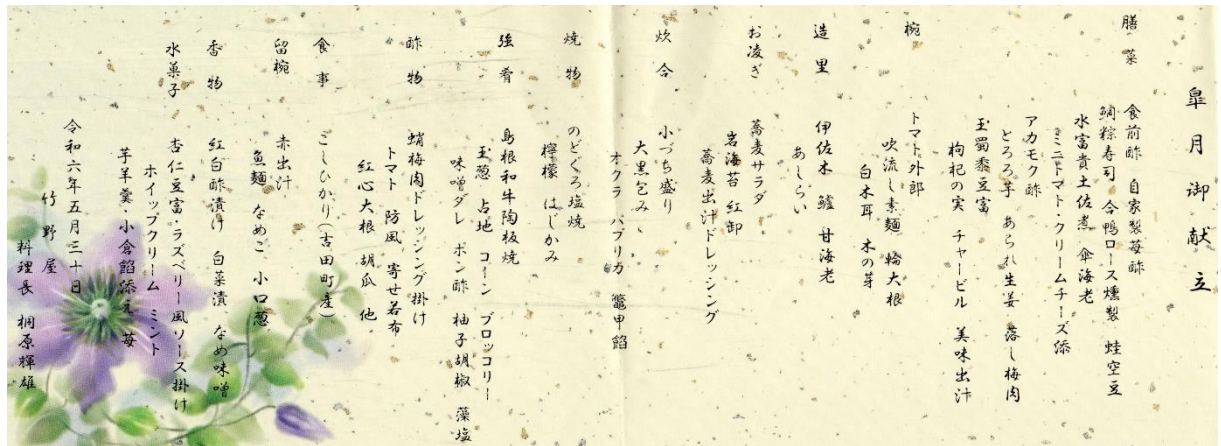 皐月御献立
膳菜
食前酢 自家製苺酢
鯛粽寿司 合鴨ロース燻製 蛙空豆
水富貴土佐煮 傘海老
ミニトマト・クリームチーズ添
アカモク酢
とろろ芋 あられ生姜 落し梅肉
玉蜀黍豆富
枸杞の実 チャービル 美味出汁
椀
トマト外郎
吹流し素麺 輪大根
白木耳 木の芽
造里
伊佐木 鱸 甘海老
あしらい
お凌ぎ
蕎麦サラダ
岩海苔 紅卸
蕎麦出汁ドレッシング
炊合
小づち盛り
大黒包み
オクラ パプリカ 鼈甲餡
焼物
のどぐろ塩焼
檸檬 はじかみ
強肴
島根和牛陶板焼
玉葱 占地 コーン ブロッコリー
味噌ダレ ポン酢 柚子胡椒 藻塩
酢物
蛸梅肉ドレッシング掛け
トマト 防風 寄せ若布
紅心大根 胡瓜 他
食事
こしひかり(吉田町産)
留椀
赤出汁
魚麺 なめこ 小口葱
香物
紅白酢漬け 白菜漬 なめ味噌
水菓子
杏仁豆富・ラズベリー風ソース掛け
ホイップクリーム ミント
芋羊羹 小倉餡添え 苺
令和六年五月三十日
竹野屋
料理長 桐原輝雄